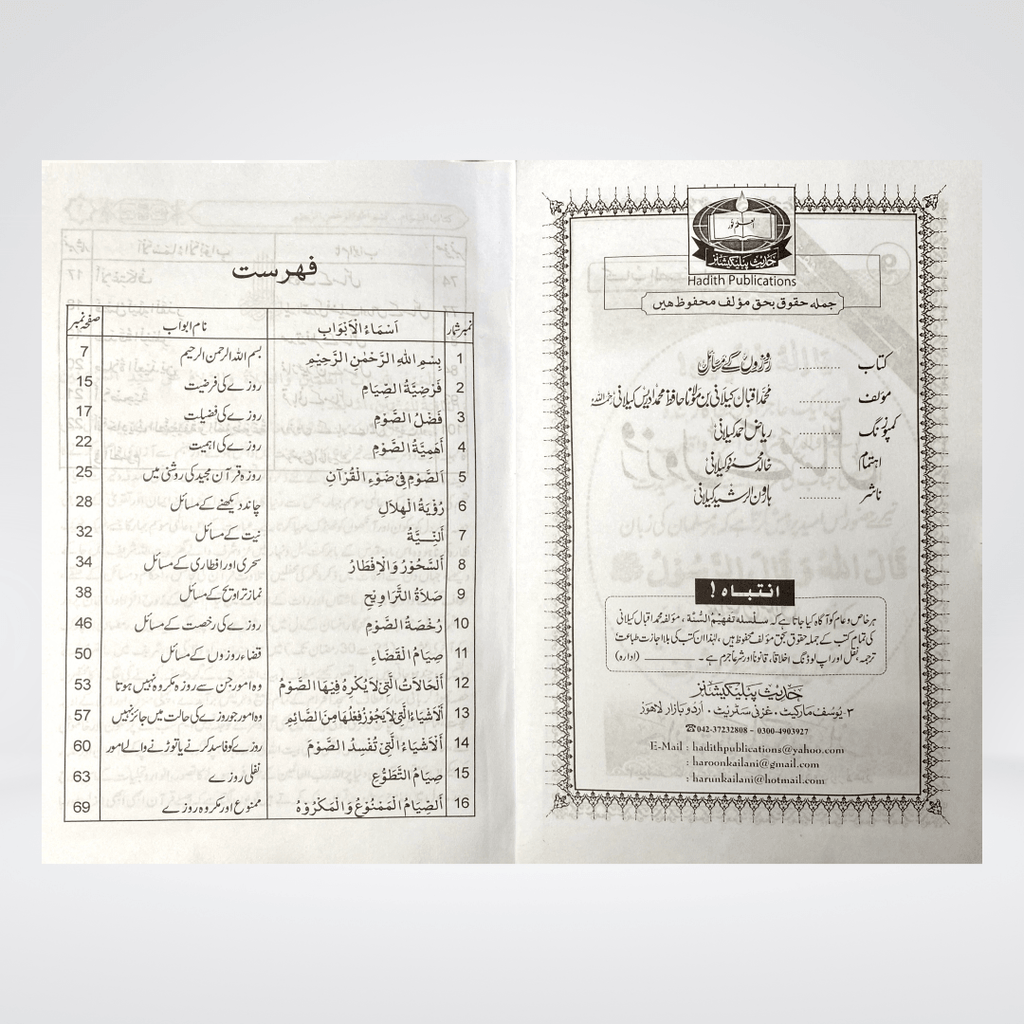 حدیث پبلیکیشنز
Hadith Publications
جملہ حقوق بحق مؤلف محفوظ ہیں
کتاب .......... روزوں کے مسائل
مؤلف .......... محمد اقبال کیلانی بن مولانا حافظ محمد ادریس کیلانی رحمہ اللہ
کمپوزنگ .......... ریاض احمد کیلانی
اہتمام .......... خالد محمود کیلانی
ناشر .......... ہارون الرشید کیلانی
انتباہ !
ہر خاص و عام کو آگاہ کیا جاتا ہے کہ سلسلہ تفہیم السنۃ ، مؤلفہ محمد اقبال کیلانی
کی تمام کتب کے جملہ حقوق بحق مؤلف محفوظ ہیں، لہٰذا ان کتب کی بلا اجازت طباعت
ترجمہ، نقل اور اپ لوڈنگ اخلاقاً، قانوناً اور شرعاً جرم ہے ۔ ـــــــــ (ادارہ)
حدیث پبلیکیشنز
۳- یوسف مارکیٹ، غزنی سٹریٹ، اردو بازار لاہور
☎042-37232808 - 0300-4903927
E-Mail : hadithpublications@yahoo.com
: haroonkailani@gmail.com
: harunkailani@hotmail.com
فہرست
نمبر شمار اَسْمَاءُ الْاَبْوَابِ نام ابواب صفحہ نمبر
1 بِسْمِ اللهِ الرَّحْمٰنِ الرَّحِيْمِ بسم اللہ الرحمن الرحیم 7
2 فَرْضِيَّةُ الصِّيَامِ روزے کی فرضیت 15
3 فَضْلُ الصَّوْمِ روزے کی فضیلت 17
4 اَهَمِيَّةُ الصَّوْمِ روزے کی اہمیت 22
5 اَلصَّوْمُ فِيْ ضَوْءِ الْقُرْآنِ روزہ قرآن مجید کی روشنی میں 25
6 رُؤْيَةُ الْهِلَالِ چاند دیکھنے کے مسائل 28
7 اَلنِّـيَّـةُ نیت کے مسائل 32
8 اَلسَّحُوْرُ وَالْاِفْطَارُ سحری اور افطاری کے مسائل 34
9 صَلَاةُ التَّرَاوِيْحِ نماز تراویح کے مسائل 38
10 رُخْصَةُ الصَّوْمِ روزے کی رخصت کے مسائل 46
11 صِيَامُ الْقَضَاءِ قضاء روزوں کے مسائل 50
12 اَلْحَالَاتُ الَّتِيْ لَا يُكْرَهُ فِيْهَا الصَّوْمُ وہ امور جن سے روزہ مکروہ نہیں ہوتا 53
13 اَلْاَشْيَاءُ الَّتِيْ لَا يَجُوْزُ فِعْلُهَا مِنَ الصَّائِمِ وہ امور جو روزے کی حالت میں جائز نہیں 57
14 اَلْاَشْيَاءُ الَّتِيْ تُفْسِدُ الصَّوْمَ روزے کو فاسد کرنے یا توڑنے والے امور 60
15 صِيَامُ التَّطَوُّعِ نفلی روزے 63
16 اَلصِّيَامُ الْمَمْنُوْعُ وَالْمَكْرُوْهُ ممنوع اور مکروہ روزے 69